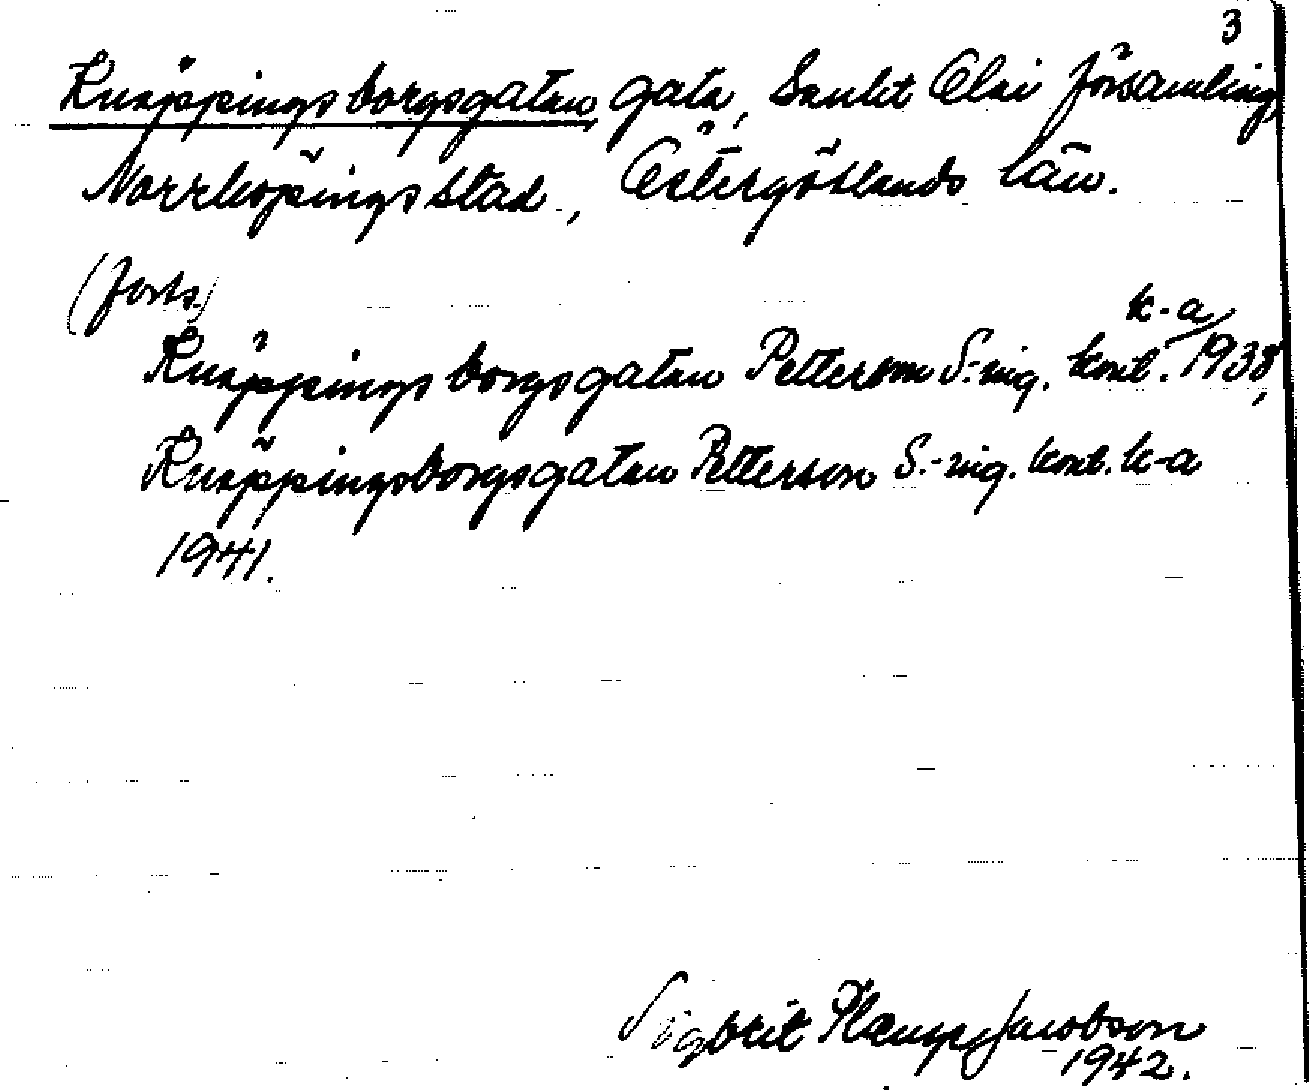 3
Knäppingsborgsgatan, gata, Sankt Olai församling,
Norrköpings stad, Östergötlands län.
(forts)
k-a
Knäppingsborgsgatan Petterson S.-ing. kont. 1938,
Knäppingsborgsgatan Petterson S.-ing. kont. k-a
1941.
Sigbrit Plænge Jacobson
1942.